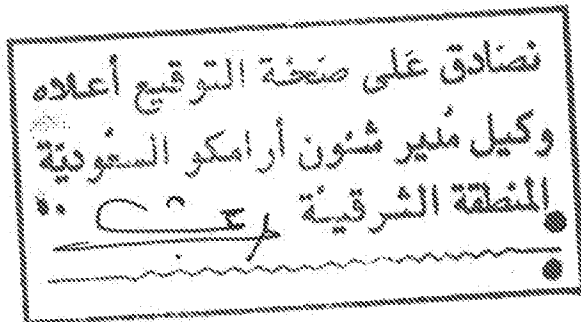 نصَادق عَلى صَحَّة التوقيع أعلاه
وكيل مُدير شئون أرامكو السعُوديَة
المنطقة الشرقيَة